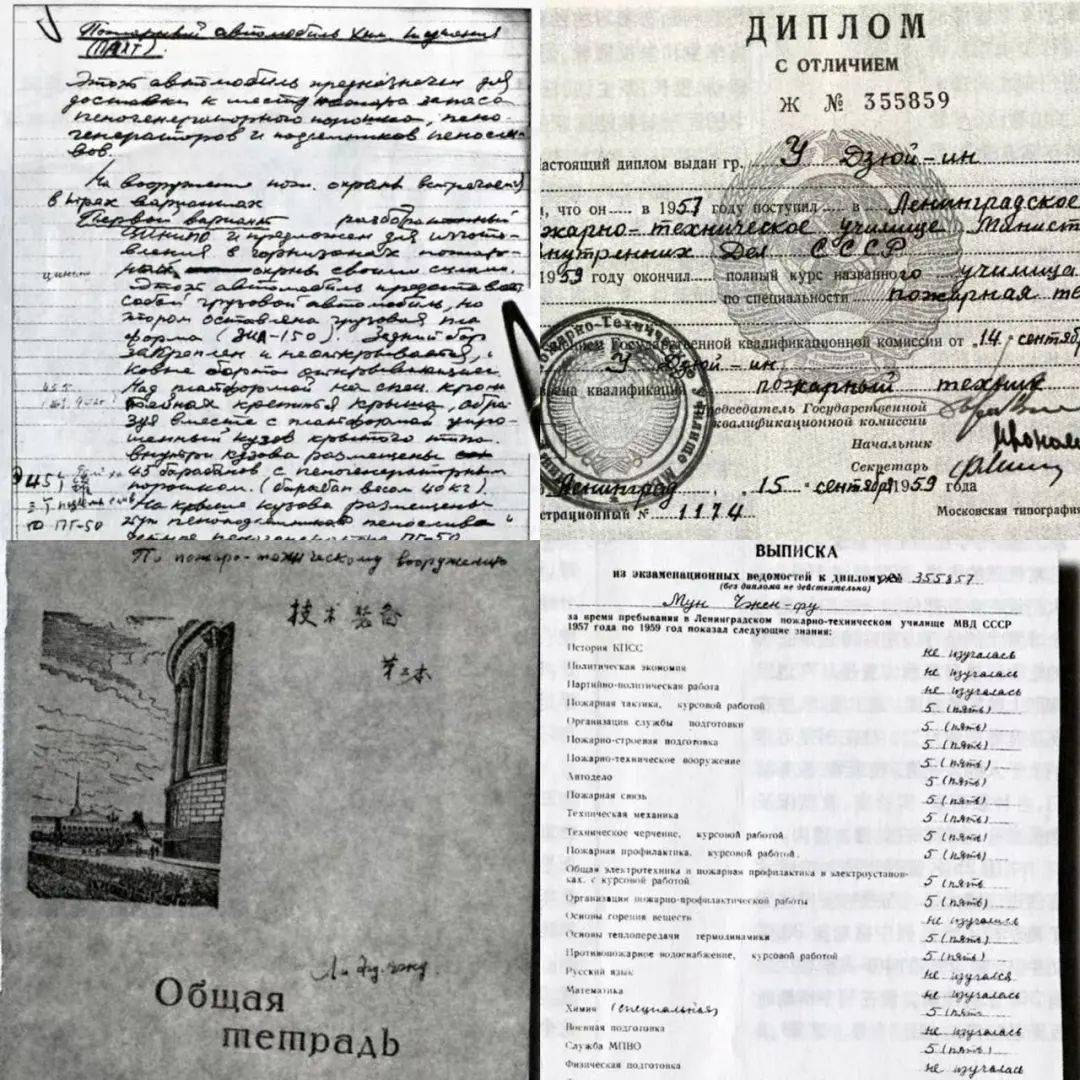 Пожарный автомобиль хим. тушения
(ПАХТ).
Этот автомобиль предназначен для
доставки к месту пожара запаса
пеногенераторного порошка, пено
генераторов и подъемников пеносли
вов.
На вооружении пож. охраны встречается
в трех вариантах
Первый вариант
ЦНИИПО и предложен для изгото-
вления в гарнизонах пожар-
охраны своими силами.
Этот автомобиль представляет
собой грузовой автомобиль, на
котором оставлена грузовая пла
форма (ЗИЛ-150). Задний борт
закреплен и неоткрывается,
ковые борта открывающиеся.
Над платформой на спец. крон
крепится крыша, обра
зуя вместе с платформой упро
щенный кузов крытого типа.
Внутри кузова размещены
45 барабанов с пеногенераторным
порошком. (барабан весом 40 кг).
На крыше кузова размещены
ПГ-50
ДИПЛОМ
С ОТЛИЧИЕМ
Ж № 355859
астоящий диплом выдан гр. У Дзюй-ин
, что он в 1957 году поступил в Ленинградское
жарно-техническое училище Минист
нутренних Дел СССР
1959 году окончил полный курс названного училища
по специальности пожарная те
ением Государственной квалификационной комиссии от „14" сентяб
У Дзюй-ин
ена квалификация пожарный техник
редседатель Государственной
квалификационной комиссии
Начальник
Секретарь
Ленинград, „15" сентября 1959 года
страционный № 1174
Московская типография
По пожарно-техническому вооружению
技术装备
第三本
Общая
тетрадь
ВЫПИСКА
из экзаменационных ведомостей к диплому № 355857
(без диплома не действительна)
Мун Чжен-фу
за время пребывания в Ленинградском пожарно-техническом училище МВД СССР
1957 года по 1959 год показал следующие знания:
История КПСС не изучалась
Политическая экономия не изучалась
Партийно-политическая работа не изучалась
Пожарная тактика, курсовой работой 5 (пять)
Организация службы подготовки 5 (пять)
Пожарно-строевая подготовка 5 (пять)
Пожарно-техническое вооружение 5 (пять)
Автодело 5 (пять)
Пожарная связь 5 (пять)
Техническая механика 5 (пять)
Техническое черчение, курсовой работой. 5 (пять)
Пожарная профилактика, курсовой работой. 5 (пять)
Общая электротехника и пожарная профилактика в электроустанов-
ках, с курсовой работой 5 (пять
Организация пожарно-профилактической работы 5 (пять)
Основы горения веществ не изучались
Основы теплопередачи термодинамики 5 (пять)
Противопожарное водоснабжение, курсовой работой 5 (пять)
Русский язык не изучался
Математика не изучалась
Химия (специальная) 5 (пять
Военная подготовка не изучалась
Служба МПВО 5 (пять)
Физическая подготовка не изучалась